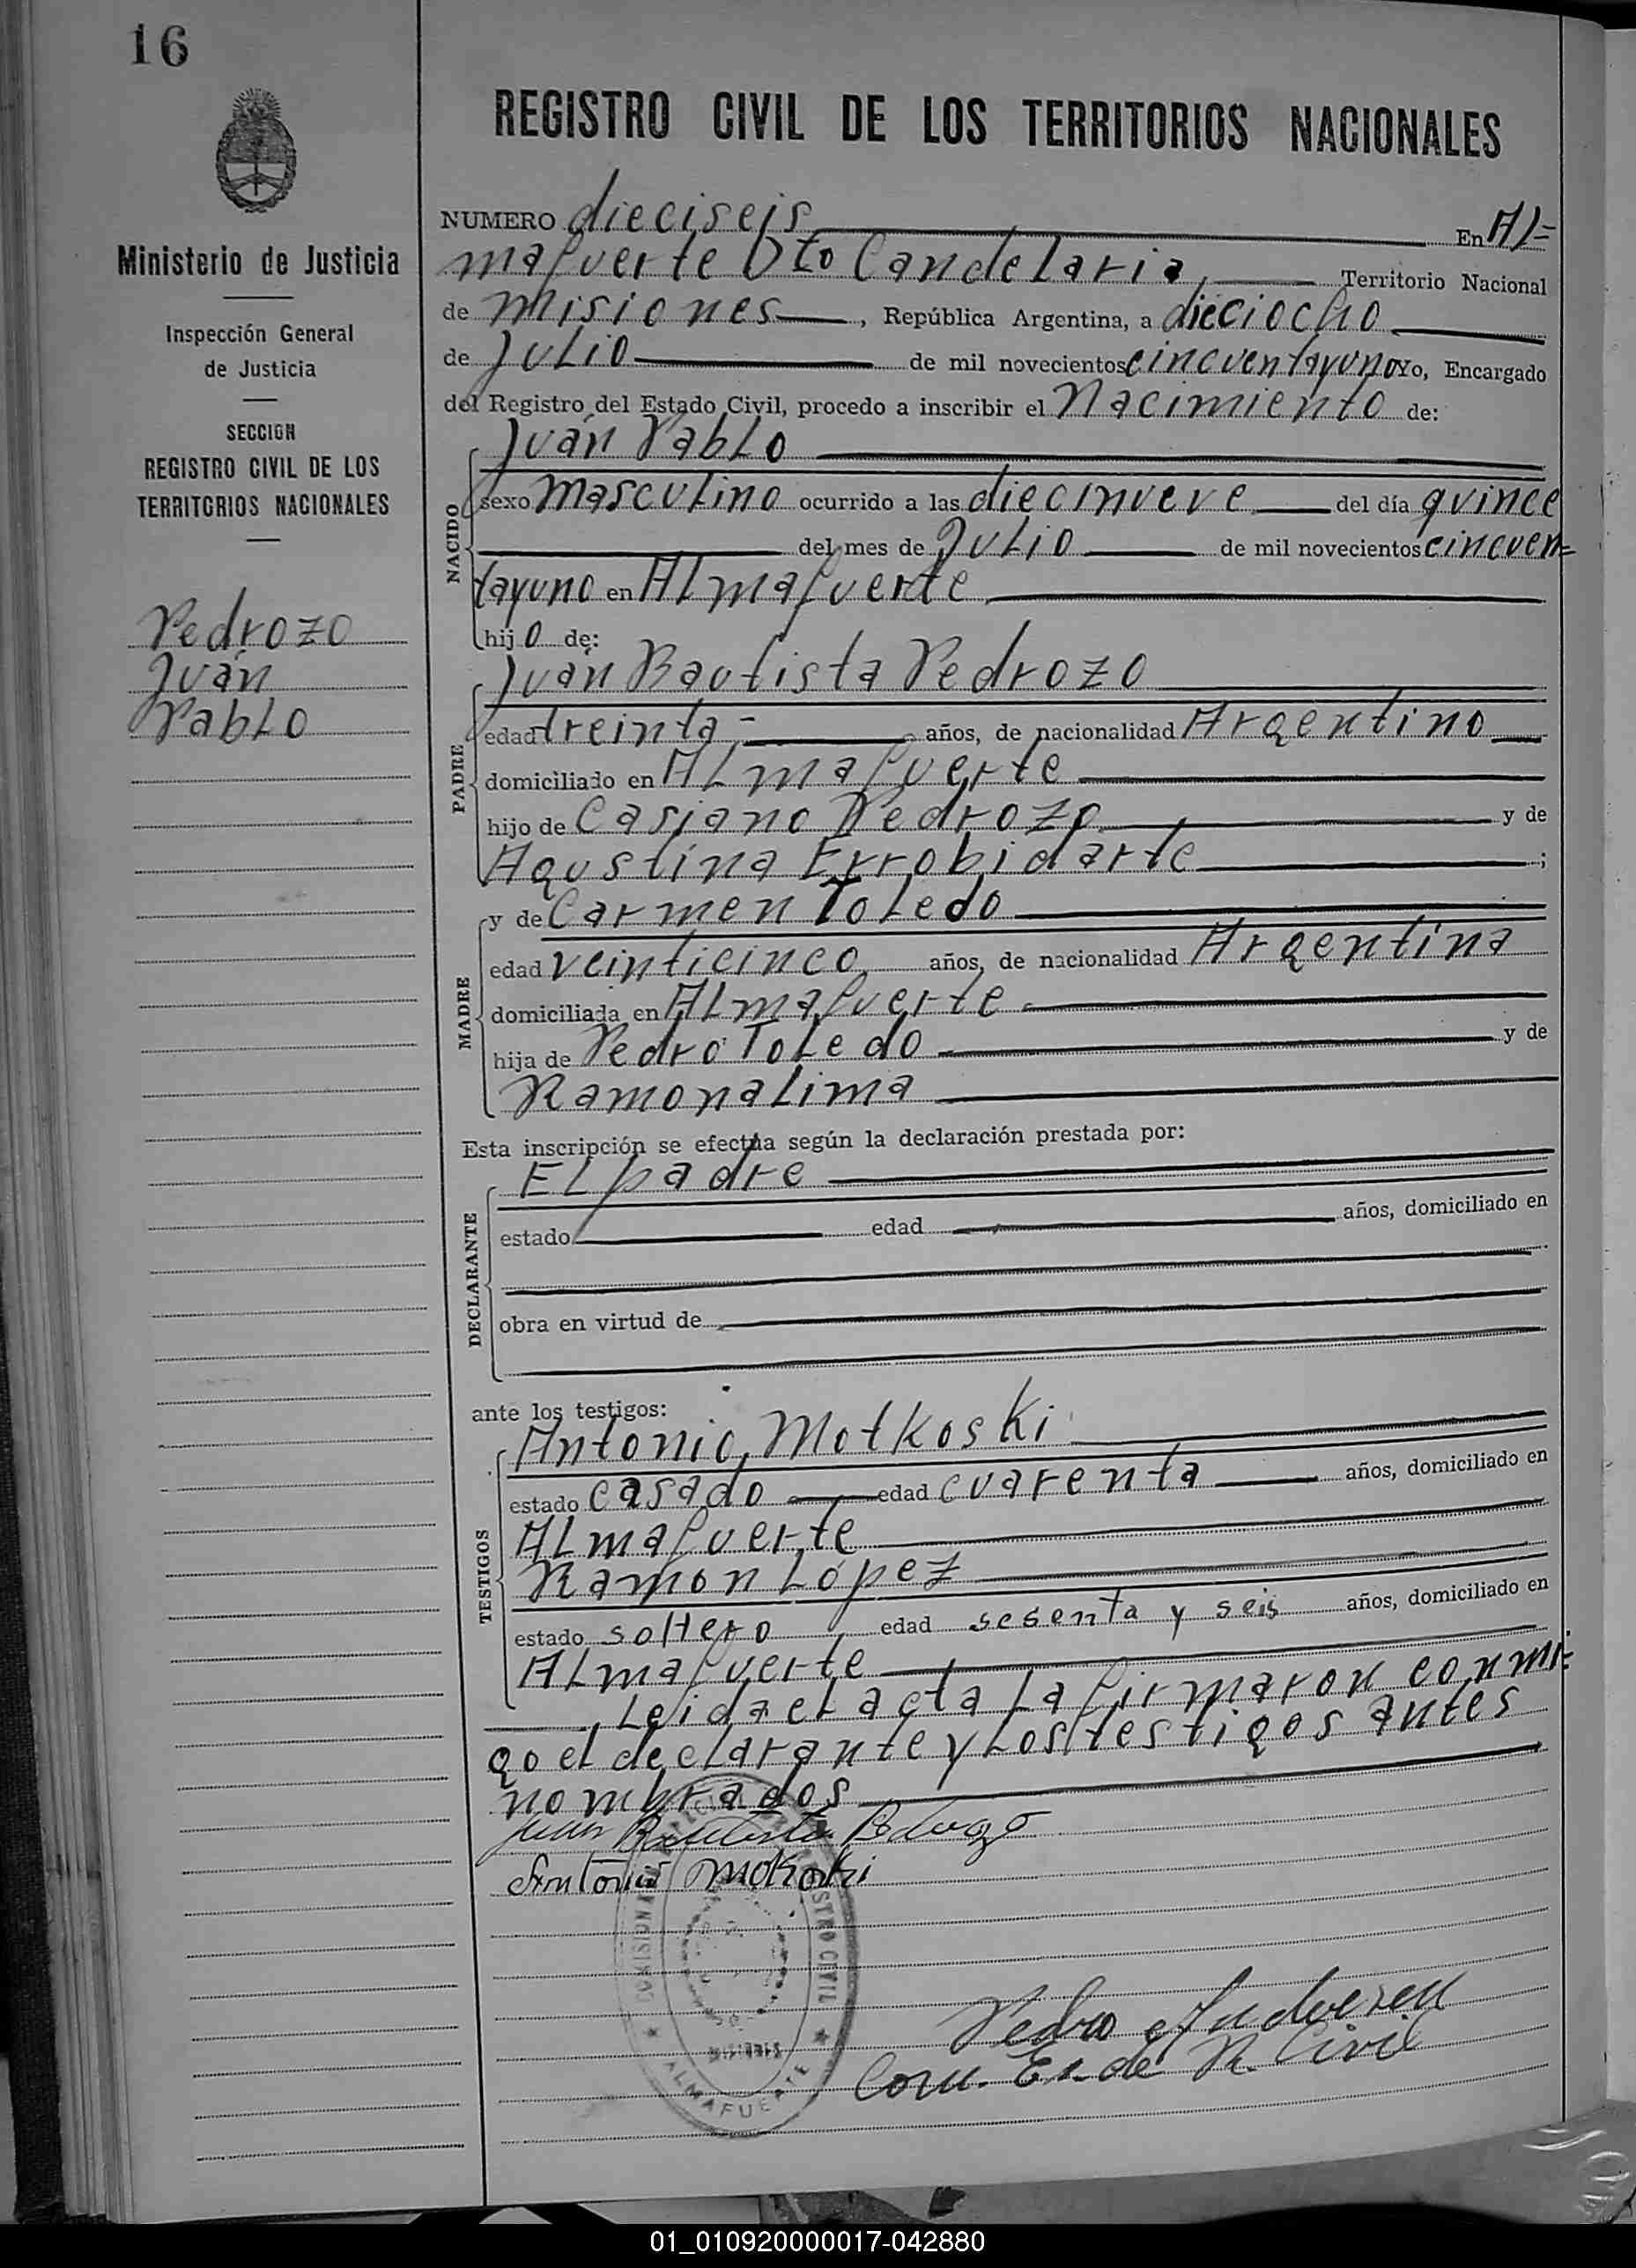 16
Ministerio de Justicia
Inspección General
de Justicia
SECCION
REGISTRO CIVIL DE LOS
TERRITORIOS NACIONALES
Pedrozo
Juán
Pablo
REGISTRO CIVIL DE LOS TERRITORIOS NACIONALES
NUMERO dieciseis En Al=
mafuerte Dto Candelaria, Territorio Nacional
de Misiones, República Argentina, a dieciocho
de Julio de mil novecientos cincuentayuno Yo, Encargado
del Registro del Estado Civil, procedo a inscribir el Nacimiento de:
NACIDO
Juán Pablo
sexo masculino ocurrido a las diecinueve del día quince
del mes de Julio de mil novecientos cincuen=
tayuno en Almafuerte
hijo de:
PADRE
Juán Bautista Pedrozo
edad treinta años, de nacionalidad Argentino
domiciliado en Almafuerte
hijo de Casiano Pedrozo y de
Agustina Errobidarte;
MADRE
y de Carmen Toledo
edad veinticinco años, de nacionalidad Argentina
domiciliada en Almafuerte
hija de Pedro Toledo y de
Ramona Lima
Esta inscripción se efectúa según la declaración prestada por:
DECLARANTE
El padre
estado edad años, domiciliado en
obra en virtud de
ante los testigos:
TESTIGOS
Antonio Motkoski
estado casado edad cuarenta años, domiciliado en
Almafuerte
Ramón López
estado soltero edad sesenta y seis años, domiciliado en
Almafuerte
, Leida el acta la firmaron conmi=
go el declarante y los testigos antes
nombrados
Juan Bautista Pedrozo
Antonio
STRO CIVIL
MISIONES
ALMAFUERTE
Pedro
Com. En. de R. Civil
01_010920000017-042880